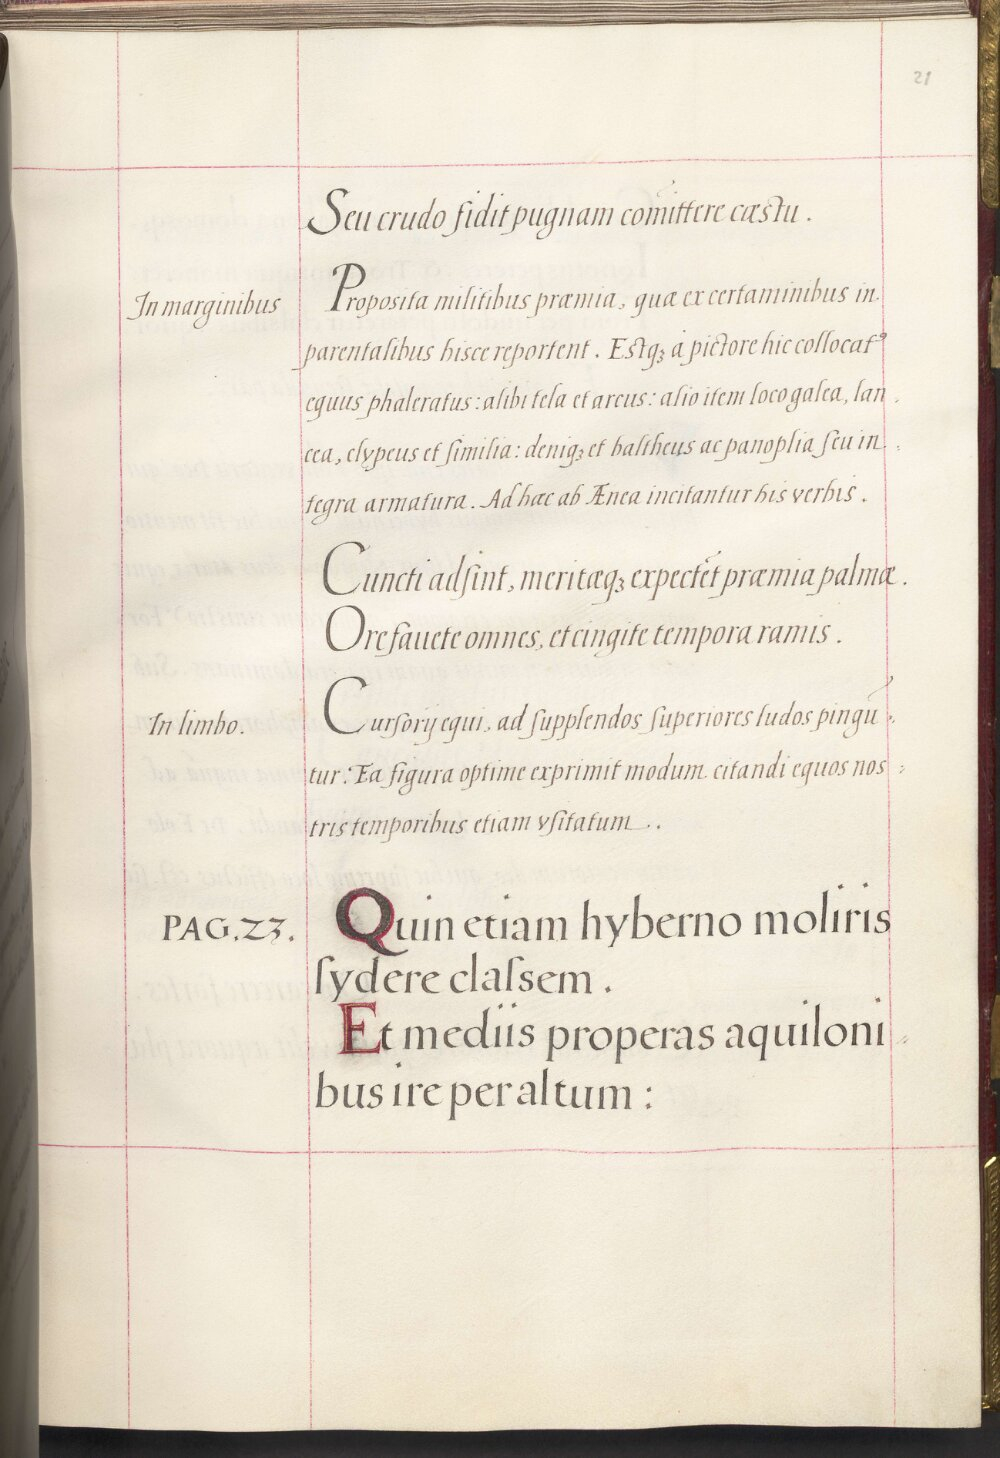 21
Seu crudo fidit pugnam com̃ittere cæstu.
In marginibus
Proposita militibus præmia, quæ ex certaminibus in
parentalibus hisce reportent. Estqꝫ à pictore hic collocatꝰ
equus phaleratus: alibi tela et arcus: alio item loco galea, lan
cea, clypeus et similia: deniqꝫ et baltheus ac panoplia seu in
tegra armatura. Ad hæc ab Ænea incitantur his verbis.
Cuncti adsint, meritæqꝫ expectẽt præmia palmæ.
Ore fauete omnes, et cingite tempora ramis.
In limbo.
Cursorij equi, ad supplendos superiores ludos pingũ
tur: Ea figura optime exprimit modum citandi equos nos
tris temporibus etiam vsitatum..
PAG. 23.
Quin etiam hyberno moliris
sydere classem.
Et mediis properas aquiloni
bus ire per altum: